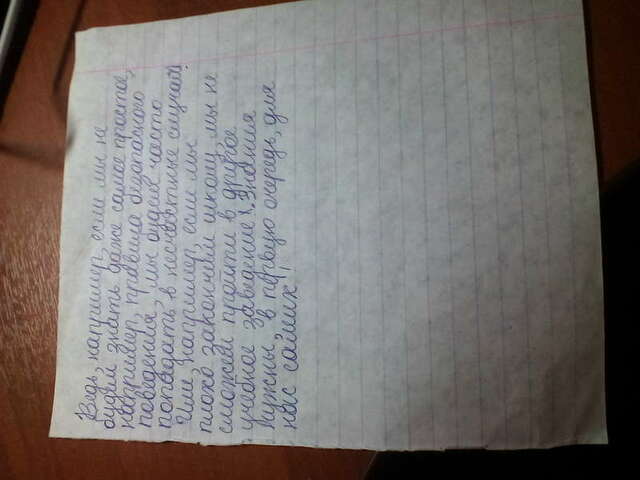 Ведь, например, если мы не
будем знать даже самое простое,
например, правила безопасного
поведения, мы будем часто
попадать в несчастные случаи!
Или например, если мы
плохо закончим школу, мы не
сможем пройти в другое
учебное заведение! Знания
нужны в первую очередь, для
нас самих!